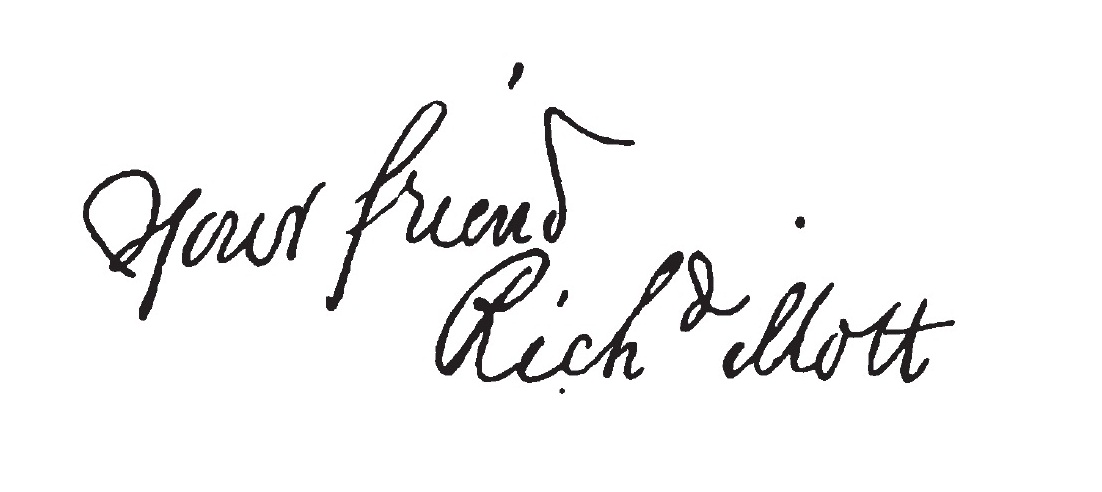 Your friend
Richd Mott